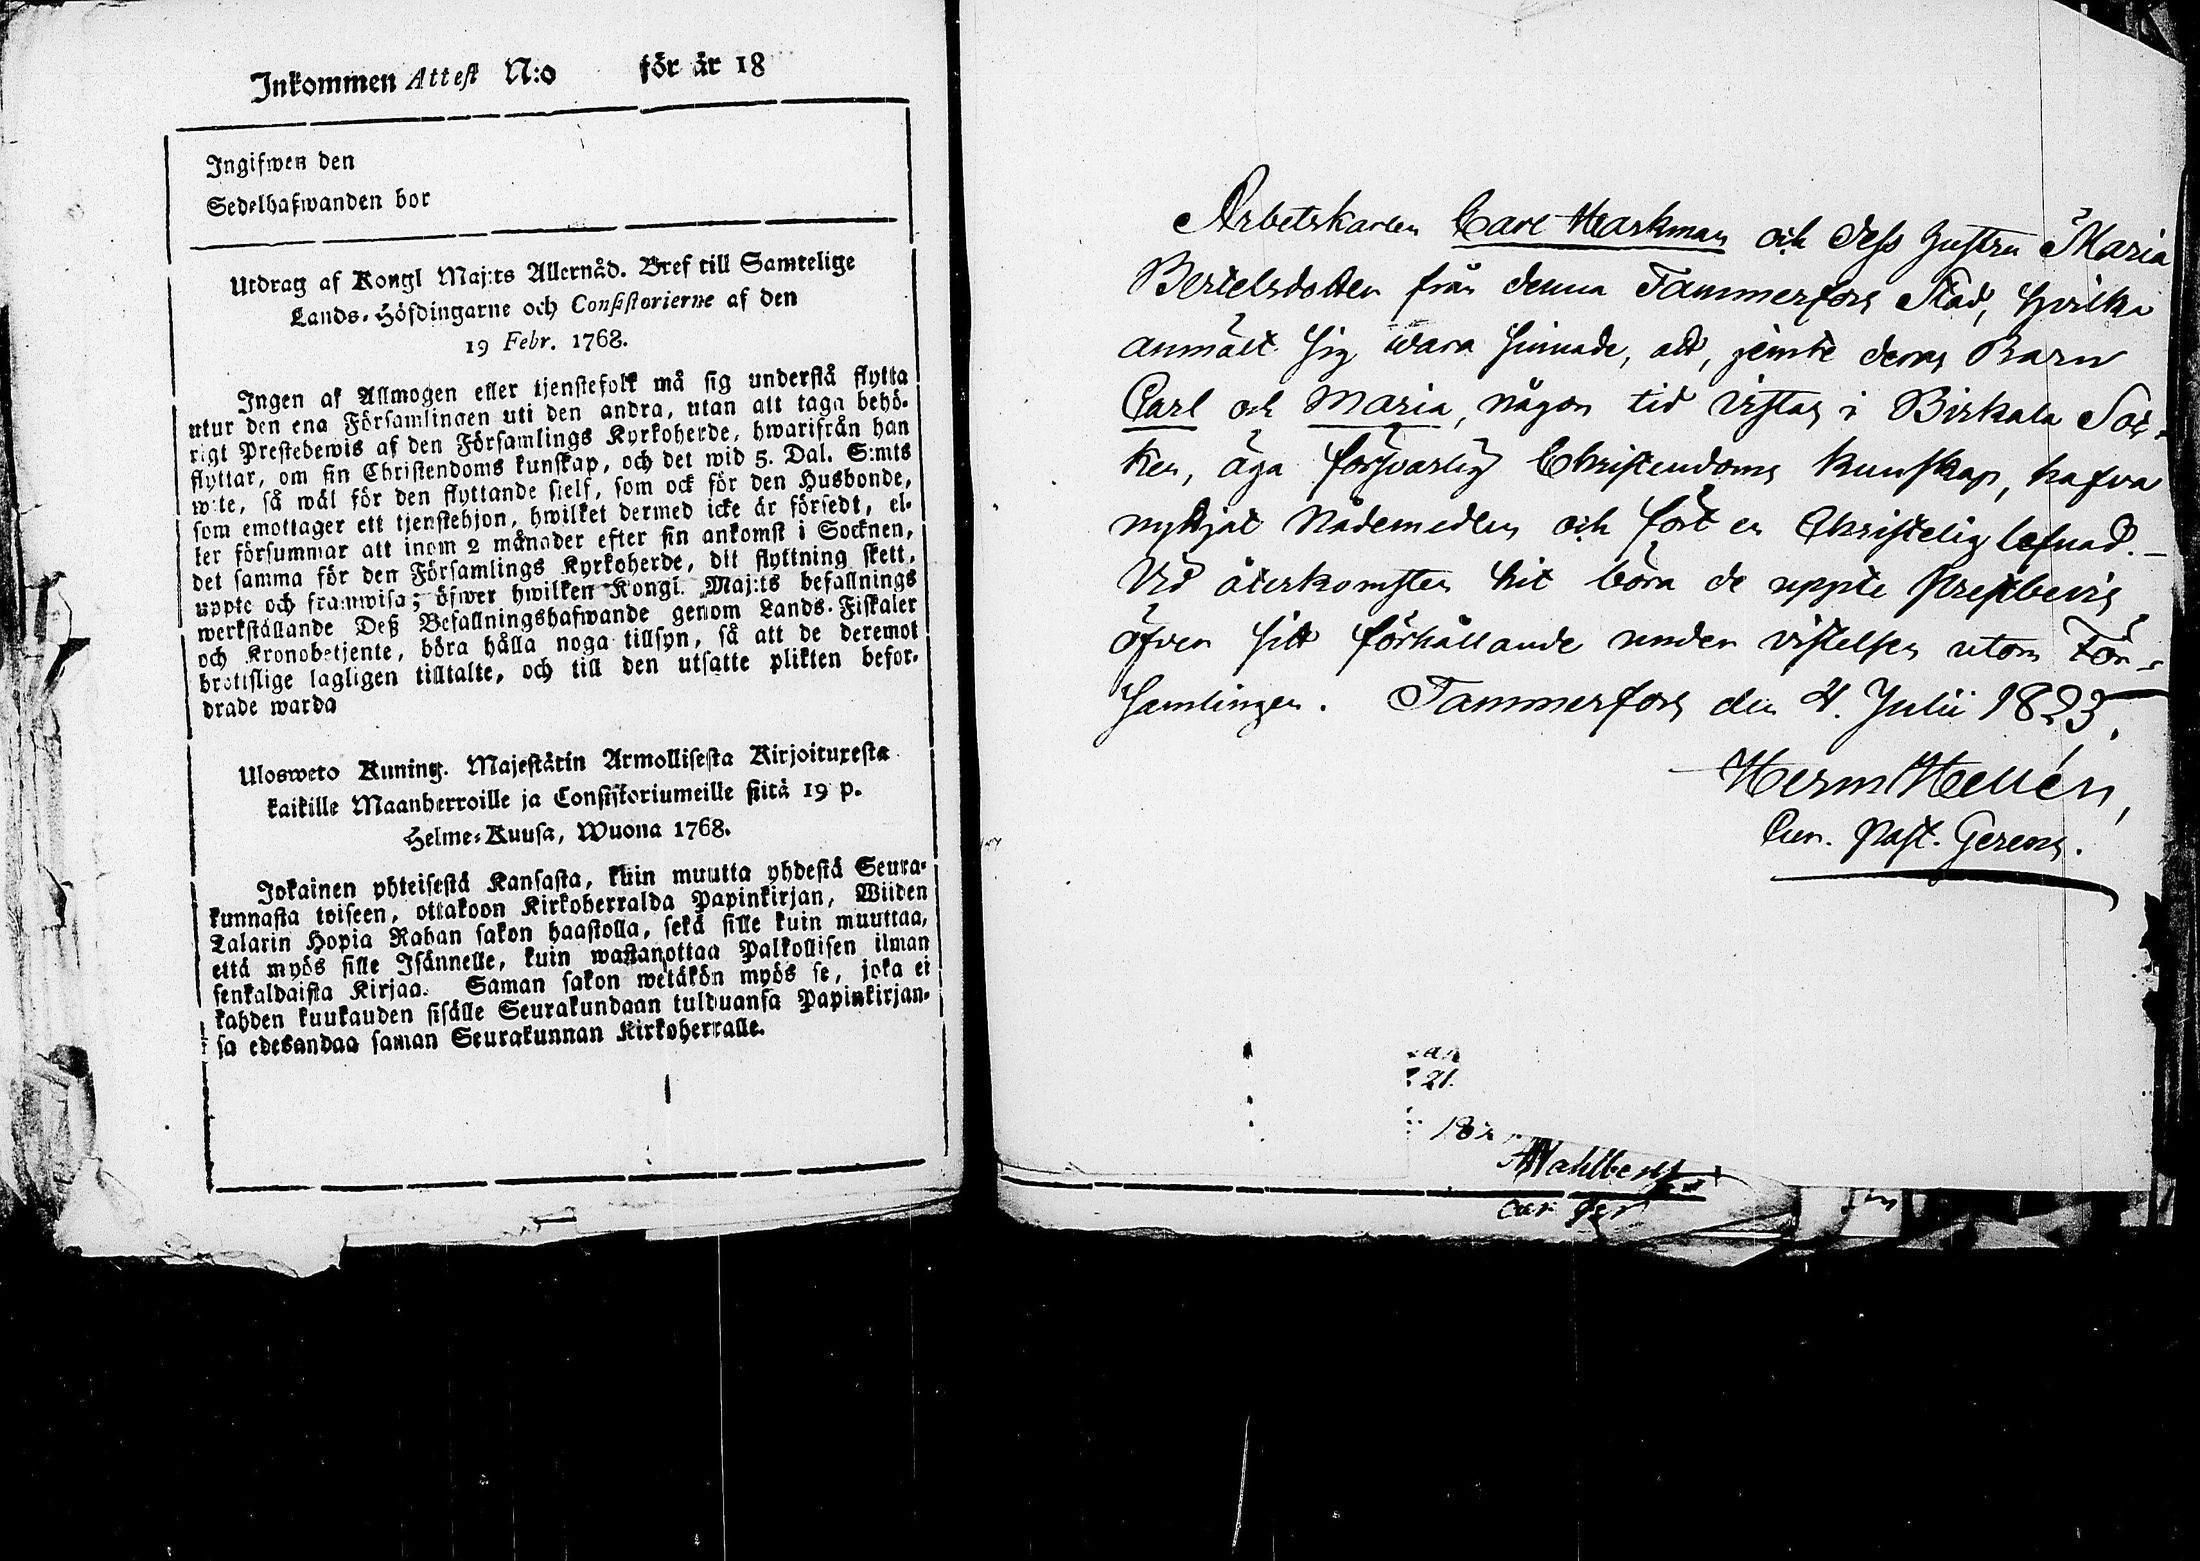 Inkommen Attest N:o för år 18
Ingifwen den
Sedelhafwanden bor
Utdrag af Kongl Maj:ts Allernåd. Bref till Samtelige
Lands-Höfdingarne och Consistorierne af den
19 Febr. 1768.
Ingen af Allmogen eller tjenstefolk må sig understå flytta
utur den ena Församlingen uti den andra, utan att taga behö-
rigt Prestebewis af den Församlings Kyrkoherde, hwarifrån han
flyttar, om sin Christendoms kunskap, och det wid 5. Dal. S:mts
wite, så wäl för den flyttande sielf, som ock för den Husbonde,
som emottager ett tjenstehjon, hwilket dermed icke är försedt, el-
ler försummar att inom 2 månader efter sin ankomst i Socknen,
det samma för den Församlings Kyrkoherde, dit flyttning skett,
uppte och framwisa; öfwer hwilken Kongl. Maj:ts befallnings
werkställande Deß Befallningshafwande genom Lands-Fiskaler
och Kronobetjente, böra hålla noga tillsyn, så att de deremot
brottslige lagligen tilltalte, och till den utsatte plikten befor-
drade warda
Ulosweto Kuning. Majestätin Armollisesta Kirjoituxesta
kaikille Maanherroille ja Consistoriumeille siitä 19 p.
Helme-Kuusa, Wuona 1768.
Jokainen yhteisestä Kansasta, kuin muutta yhdestä Seura-
kunnasta toiseen, ottakoon Kirkoherralda Papinkirjan, Wiiden
Talarin Hopia Rahan sakon haastolla, sekä sille kuin muuttaa,
että myös sille Isännelle, kuin wastanottaa Palkollisen ilman
senkaldaista Kirjaa. Saman sakon wetäkön myös se, joka ei
kahden kuukauden sisälle Seurakundaan tulduansa Papinkirjan-
sa edesandaa saman Seurakunnan Kirkoherralle.
Arbetskarlen Carl Markman och dess hustru Maria
Bertelsdotter från denna Tammerfors Stad, hvilka
anmält sig vara sinnade, att, jemte deras Barn
Carl och Maria, någon tid vistas i Birkala Soc-
ken, äga försvarlig Christendoms kunskap, hafva
nyttjat Nådemedlen och fört en Christelig lefnad. –
Vid återkomsten hit böra de uppte Prestbevis
öfver sitt förhållande under vistelsen utom För-
samlingen. Tammerfors den 4. Julii 1823.
Herm Hellén,
Cur. Past. Gerens.
21.
18
Wahlberg
cur ger